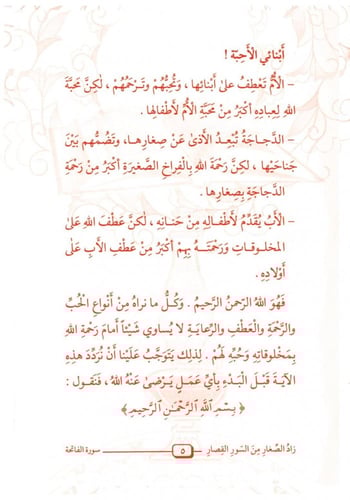 أَبْنَائي الأَحِبَّة !
– الْأُمُّ تَعْطِفُ على أَبْنَائِها ، وَتُحِبُّهُمْ وَتَرْحَمُهُمْ ، لكِنَّ مَحَبَّةَ
اللهِ لِعِبادِهِ أَكْبَرُ مِنْ مَحَبَّةِ الأُمِّ لأَطْفالِها .
– الدَّجاجَةُ تُبْعِدُ الأَذىٰ عَنْ صِغارِهـا، وَتَضُمُّهم بَيْنَ
جَناحَيْها ، لكِنَّ رَحمَةَ اللهِ بِالْفِراخِ الصَّغيرَةِ أكْبَرُ مِنْ رَحمَةِ
الدَّجاجَةِ بِصِغارِها .
– الأَبُ يُقَدِّمُ لأَطْفالِـهِ مِنْ حَنانِـهِ ، لَكنَّ عَطْفَ اللهِ عَلىٰ
المَخلـوقـاتِ وَرَحْمَتَـهُ بِـهِمْ أَكبَرُ مِنْ عَطفِ الأَبِ عَلى
أَوْلادِهِ .
فَهُوَ اللهُ الرَّحمنُ الرَّحيم . وَكُلُّ ما نَراهُ مِنْ أَنْواعِ الْحُبِّ
والرَّحْمَةِ والْعَطْفِ والرِّعايَـةِ لا يُساوي شَيْئاً أَمامَ رَحْمَةِ اللهِ
بِمَخْلُوقاتِهِ وَحُبِّهِ لَهُمْ . لِذلِكَ يَتَوَجَّبُ عَلَيْنا أَنْ نُرَدِّدَ هذِهِ
الآيَـةَ قَبْلَ الْبَدْءِ بِأَيِّ عَمَـلٍ يَرْضىٰ عَنْهُ اللهُ ، فَنَقول :
﴿ بِسْمِ ٱللَّهِ ٱلرَّحْمَٰنِ ٱلرَّحِيمِ ﴾
زَادُ الصِّغَارِ مِنَ السّوَرِ القِصارِ ٥ سورة الفاتحة